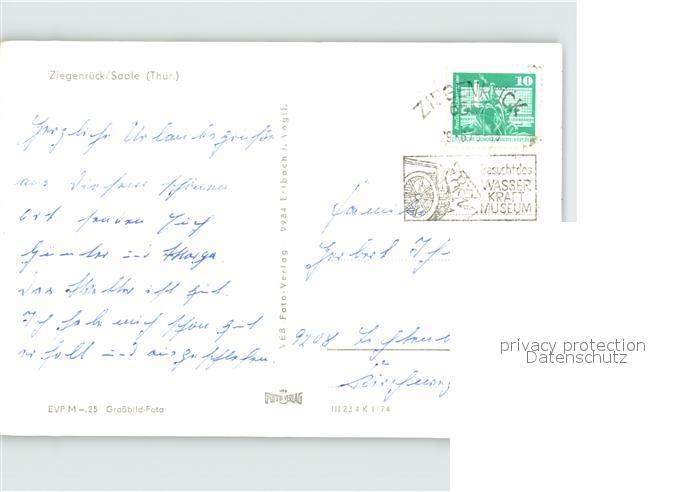 Ziegenrück/Saale (Thür.)
Herzliche Urlaubsgrüße
aus diesem schönen
Ort senden Euch
Günter und Marga.
Das Wetter ist gut.
Ich habe mich schon gut
erholt und ausgeschlafen.
EVP M -.25 Großbild-Foto
VEB Foto-Verlag 9934 Erlbach i. Vogtl.
FOTO VERLAG
III 23 4 K 1/74
10
ZIEGENRÜCK
Besucht das
WASSER
KRAFT
MUSEUM
Familie
Herbert
9208
privacy protection
Datenschutz